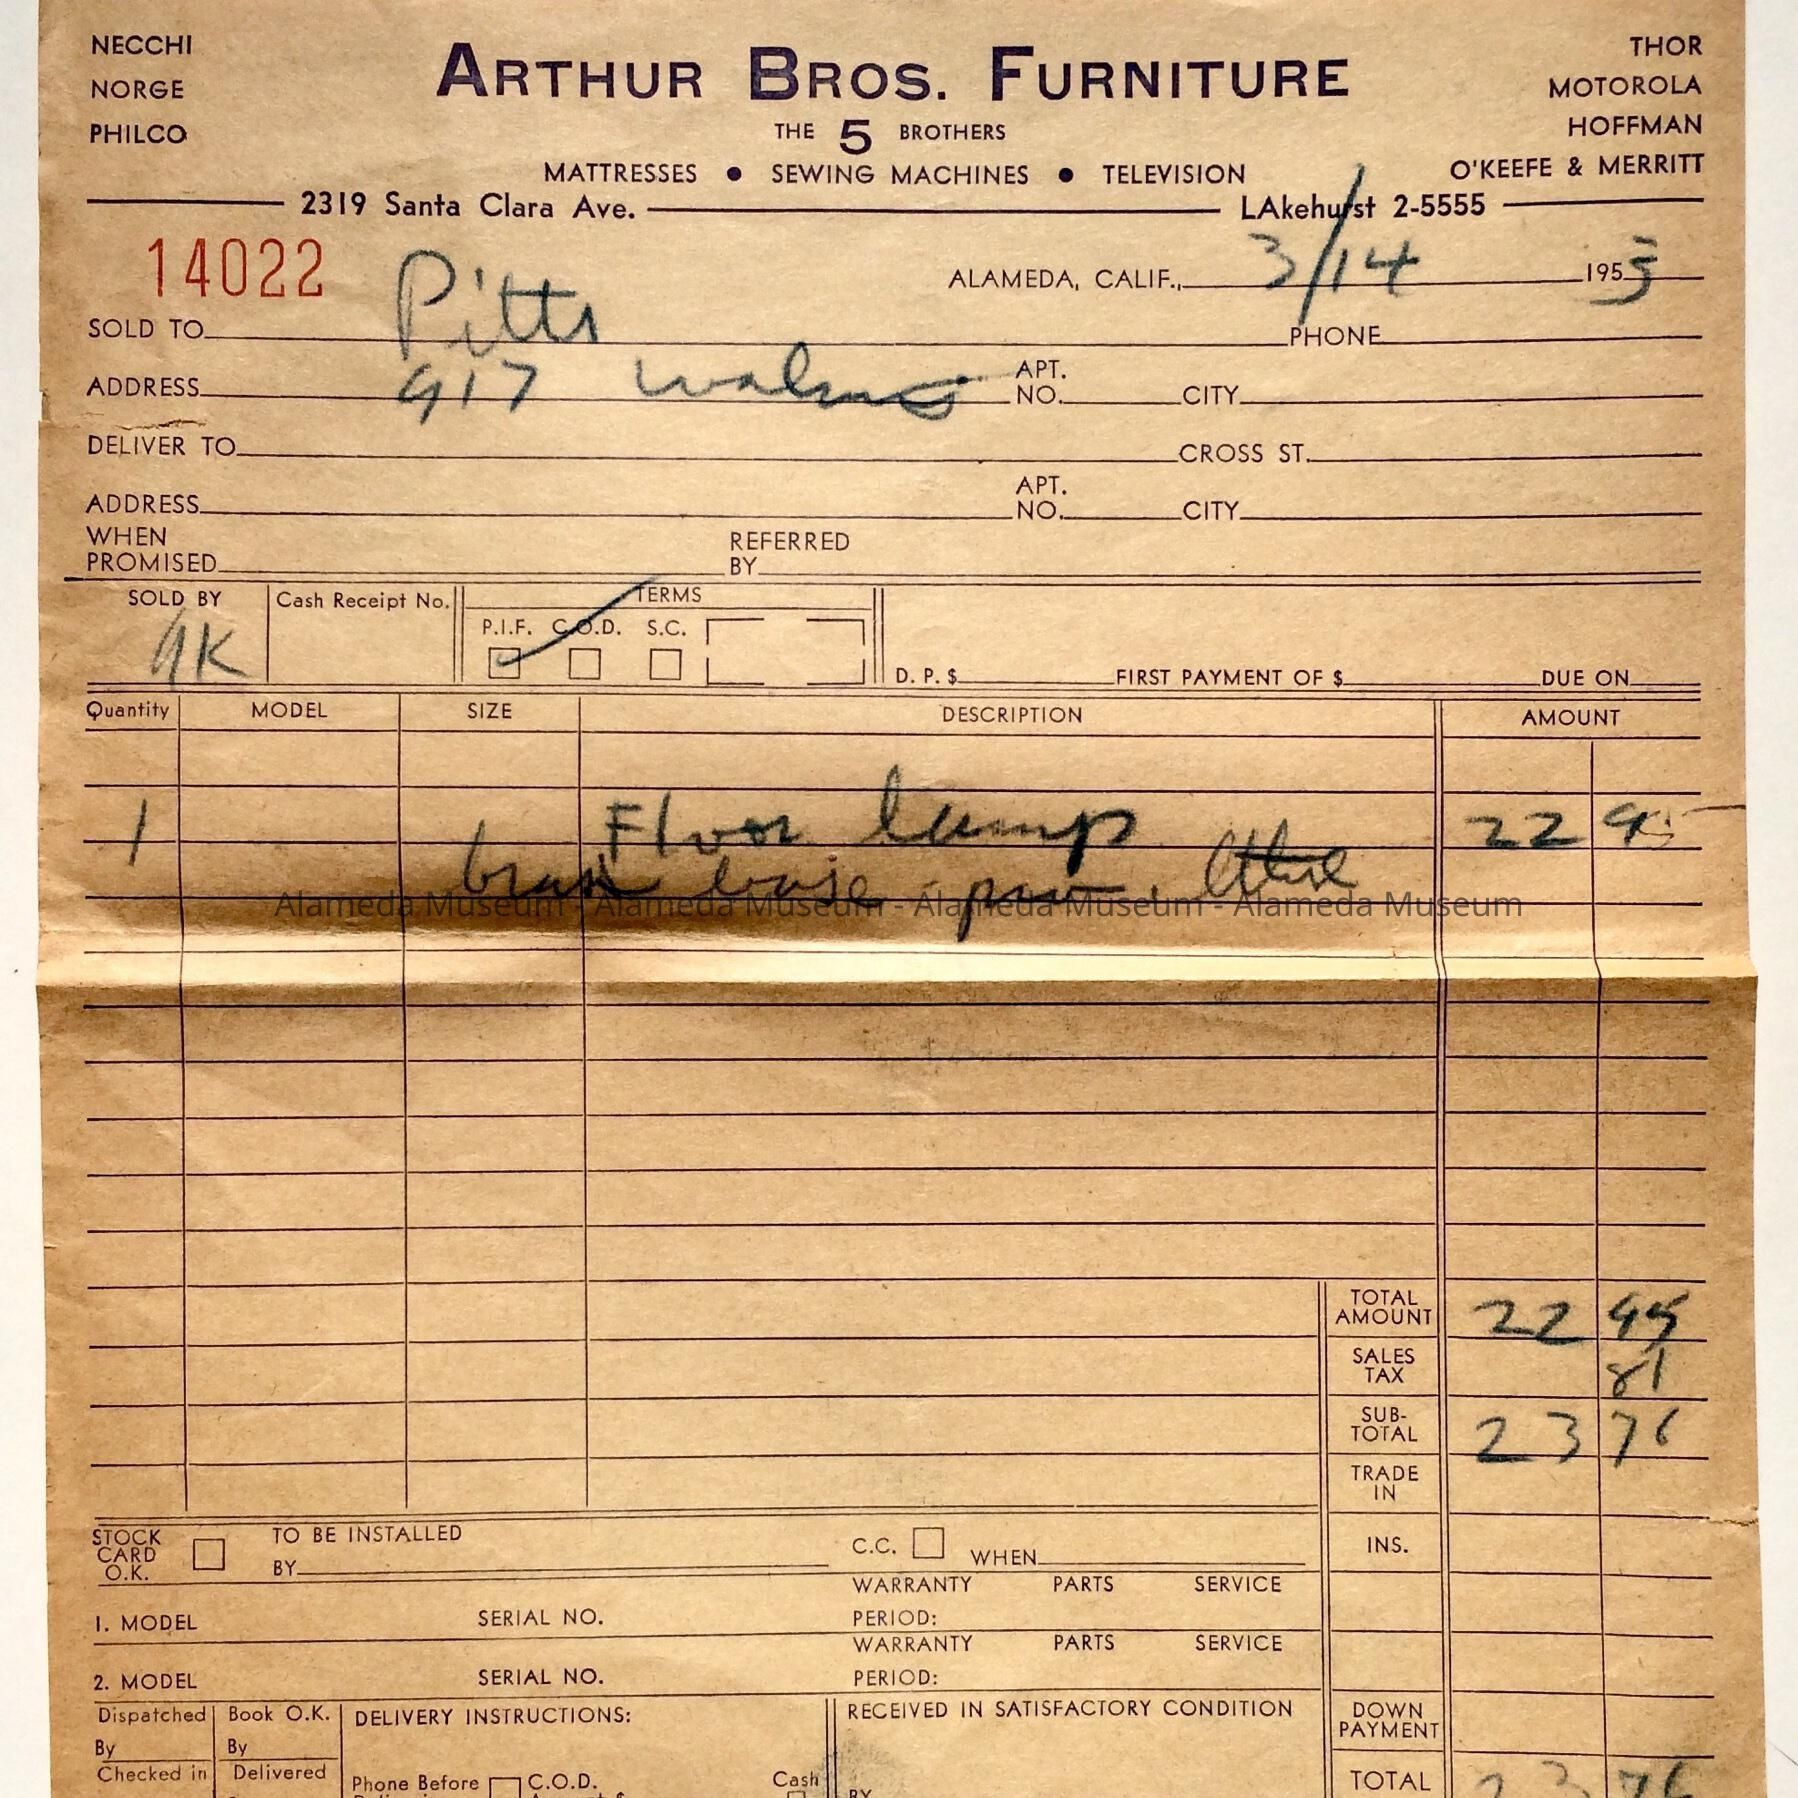 NECCHI ARTHUR BROS. FURNITURE THOR
NORGE MOTOROLA
PHILCO THE 5 BROTHERS HOFFMAN
MATTRESSES • SEWING MACHINES • TELEVISION O'KEEFE & MERRITT
2319 Santa Clara Ave. LAkehurst 2-5555
14022 ALAMEDA, CALIF., 3/14 195
SOLD TO Pitts PHONE
ADDRESS 917 APT. NO. CITY
DELIVER TO CROSS ST.
ADDRESS APT. NO. CITY
WHEN PROMISED REFERRED BY
SOLD BY Cash Receipt No. TERMS
P.I.F. C.O.D. S.C.
D. P. $ FIRST PAYMENT OF $ DUE ON
Quantity MODEL SIZE DESCRIPTION AMOUNT
1 Floor lamp 22 95
brass base
Alameda Museum - Alameda Museum - Alameda Museum - Alameda Museum
TOTAL AMOUNT 22 95
SALES TAX 81
SUB-TOTAL 23 76
TRADE IN
STOCK CARD O.K. TO BE INSTALLED BY C.C. WHEN INS.
WARRANTY PARTS SERVICE
1. MODEL SERIAL NO. PERIOD:
WARRANTY PARTS SERVICE
2. MODEL SERIAL NO. PERIOD:
Dispatched Book O.K. DELIVERY INSTRUCTIONS: RECEIVED IN SATISFACTORY CONDITION DOWN PAYMENT
By By
Checked in Delivered Phone Before C.O.D. Cash TOTAL 23 76
BY